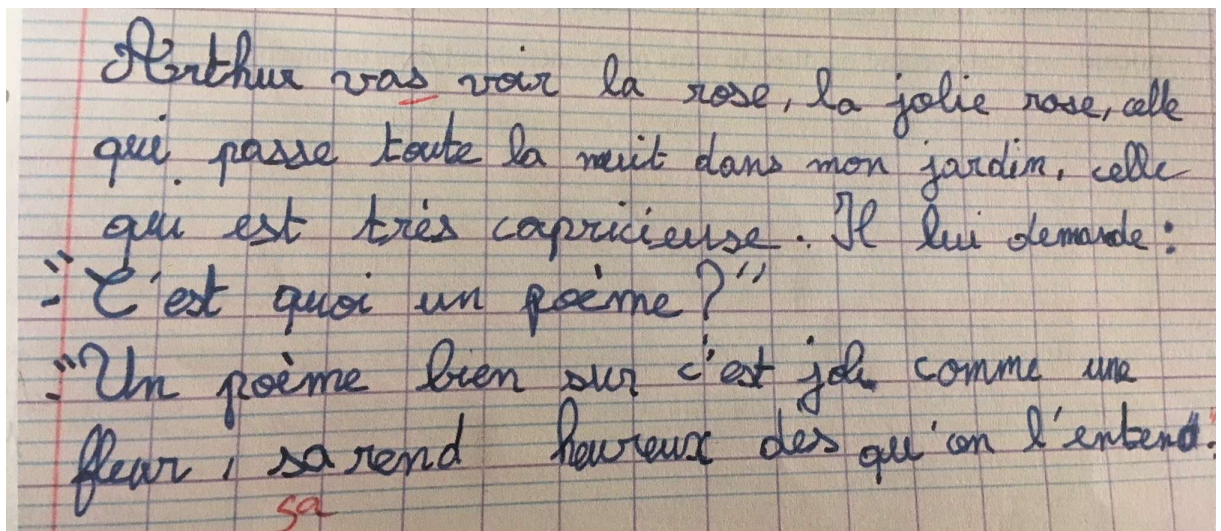 Arthur vas voir la rose, la jolie rose, celle
qui passe toute la nuit dans mon jardin, celle
qui est très capricieuse. Il lui demande :
- "C'est quoi un poème ?"
- "Un poème bien sur c'est joli comme une
fleur, sa rend heureux dès qu'on l'entend."
sa